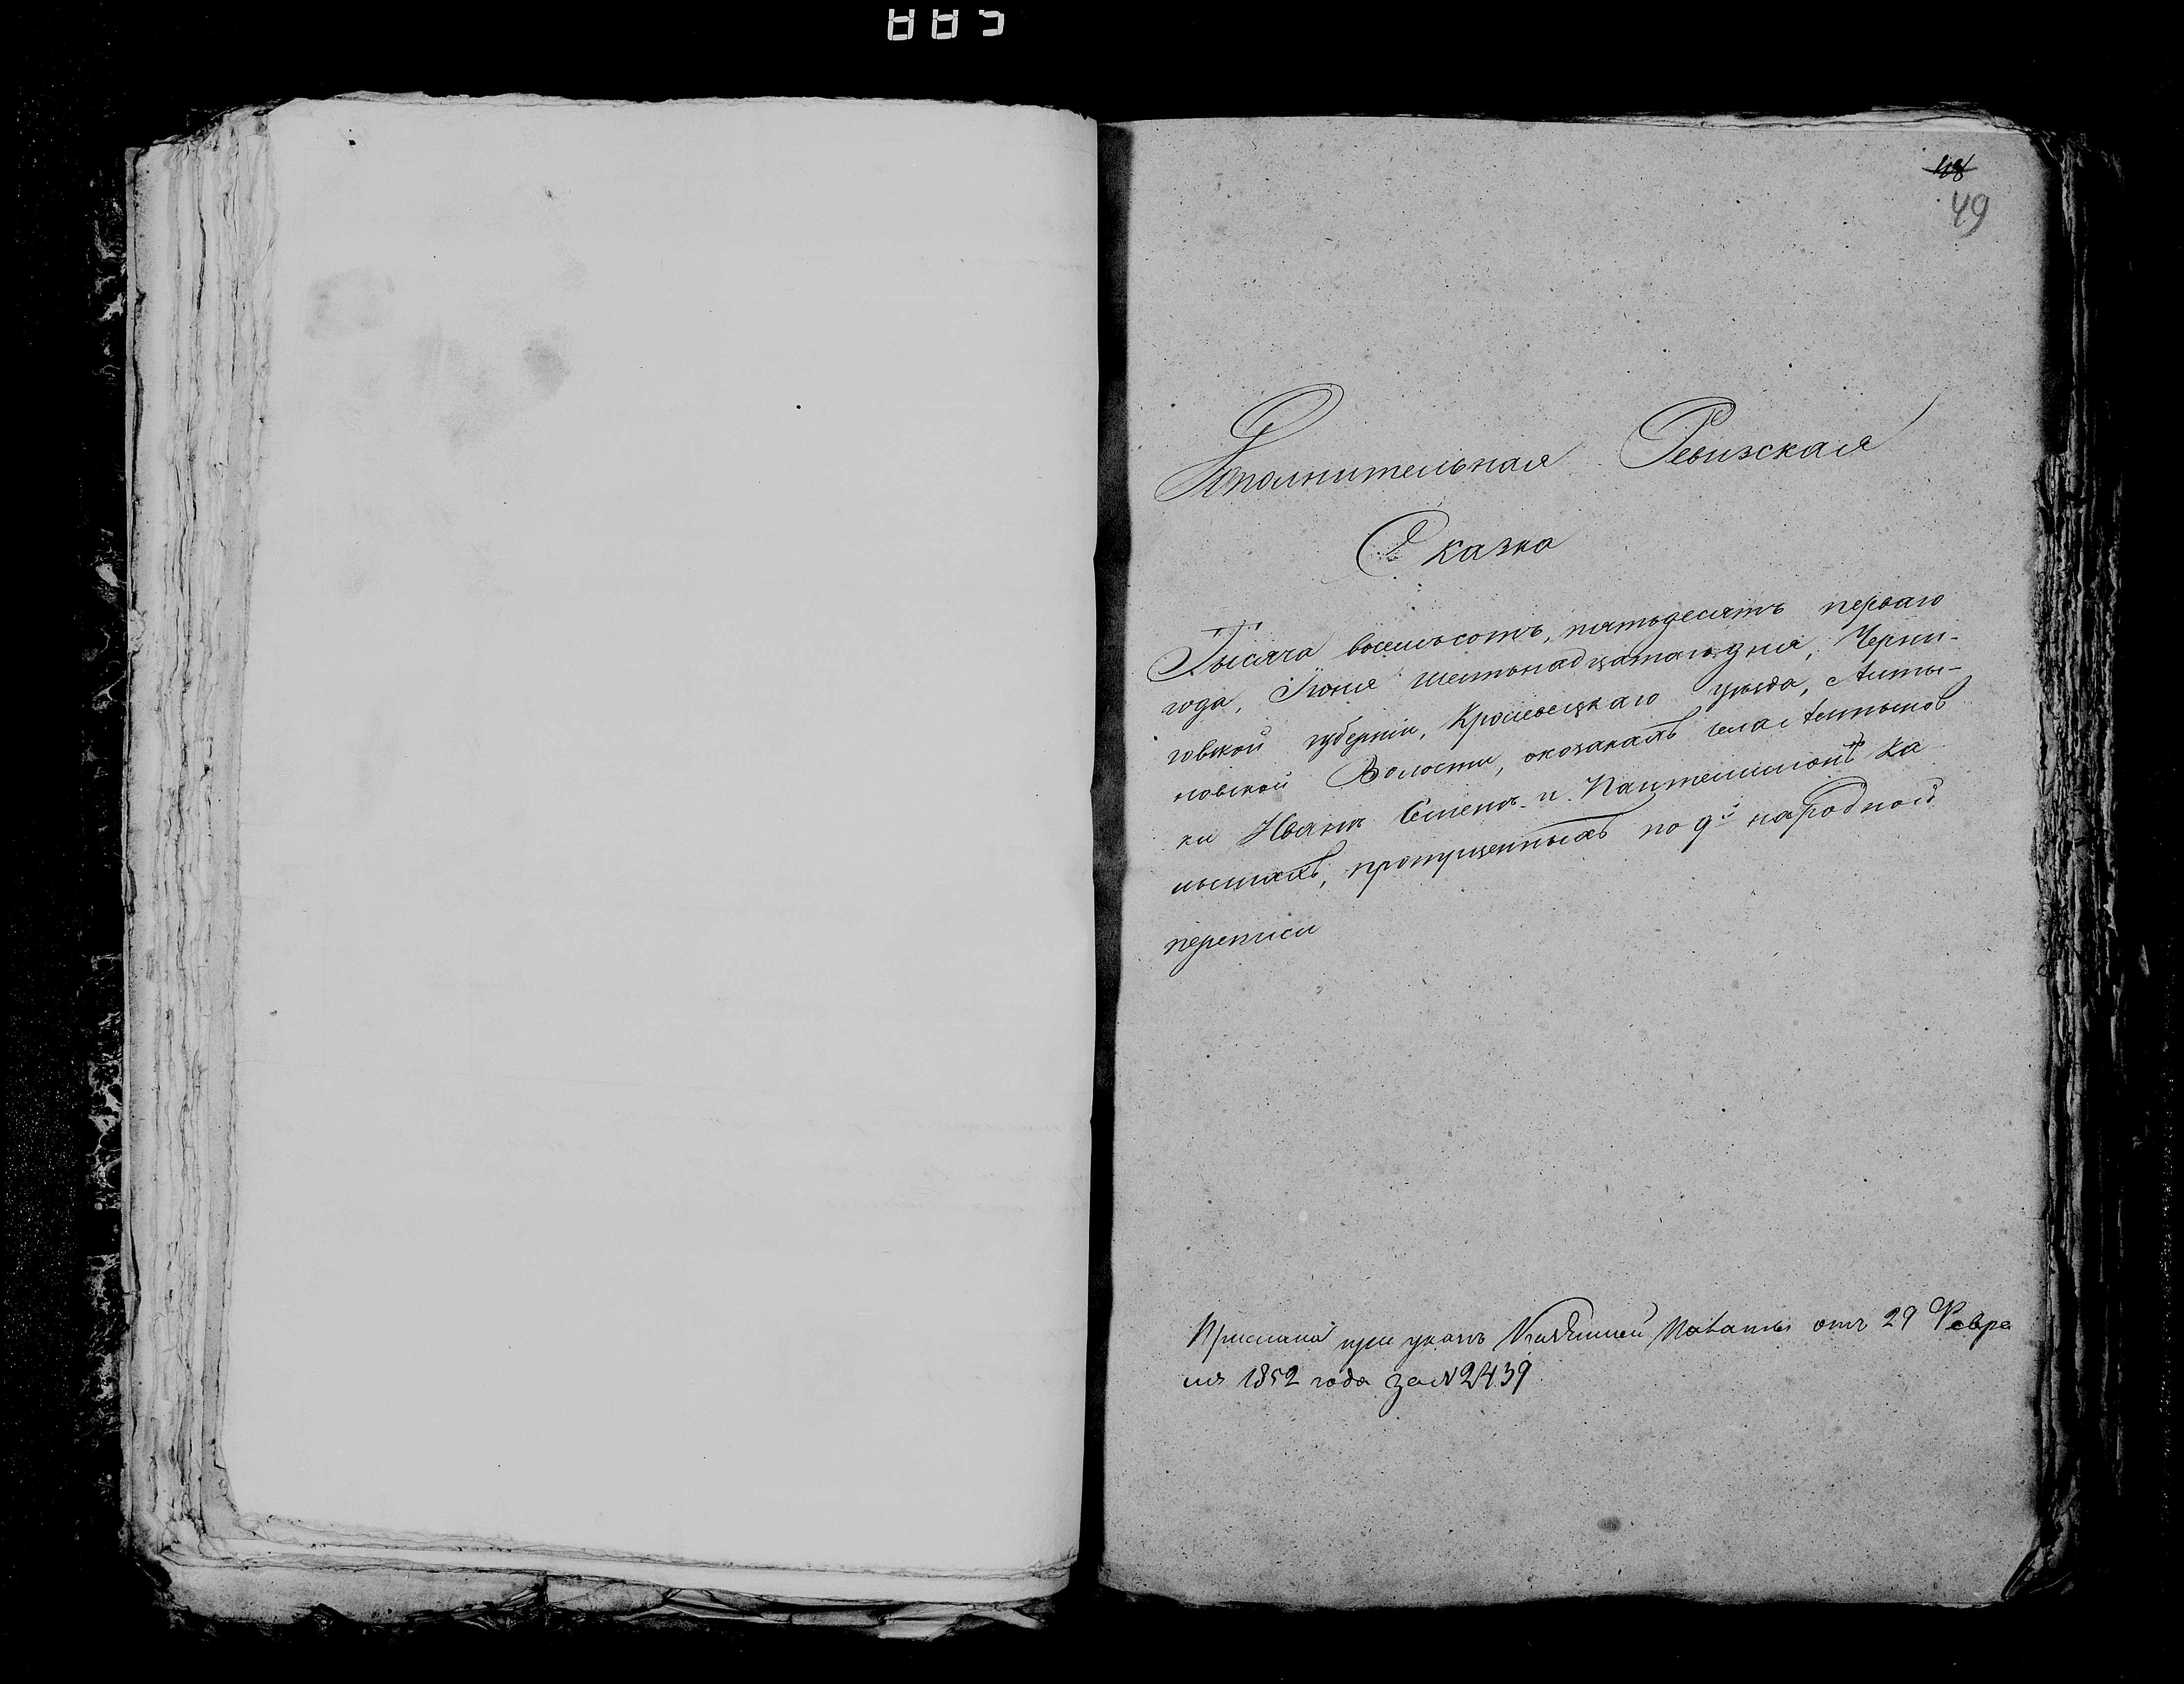 48
49
Дополнительная Ревизская
Сказка
Тысяча восемьсотъ, пятьдесятъ перваго
года, Іюня шестьнадцатаго дня, Черни-
говской губерніи, Кролевецкаго уѣзда, Алты-
новской Волости, о козакахъ села
ки Иванъ Семенъ и Пантелимонъ Ка
пропущенныхъ по 9й народной
переписи
Прислана при указѣ Палаты отъ 29 Февра
ля 1852 года за №2439